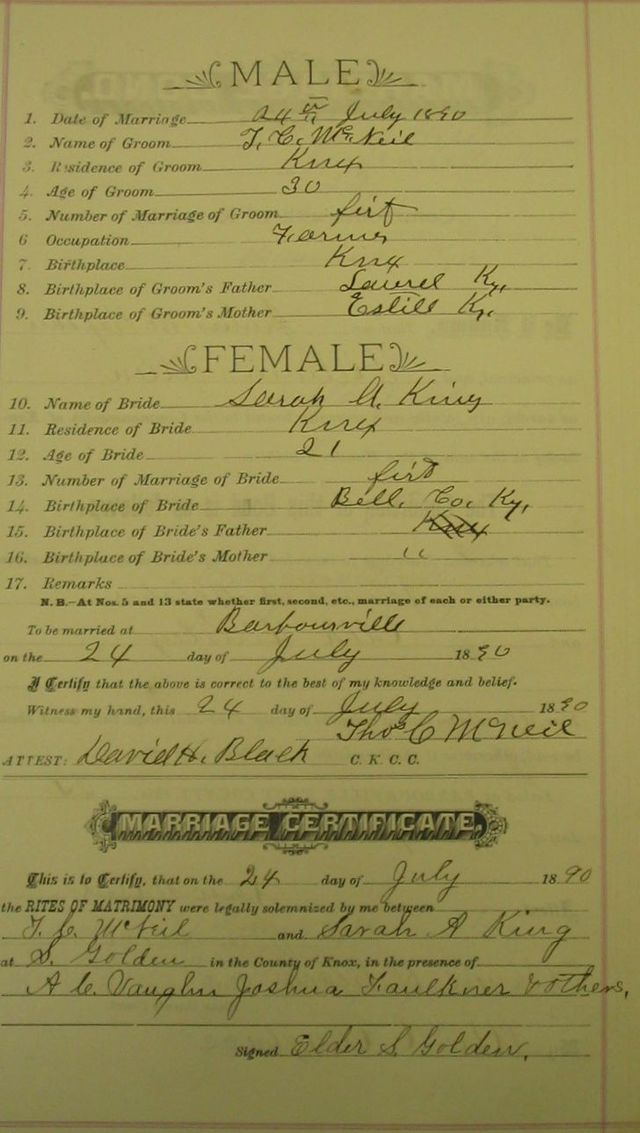 MALE
1. Date of Marriage 24th July 1890
2. Name of Groom T. C. McNeil
3. Residence of Groom Knox
4. Age of Groom 30
5. Number of Marriage of Groom first
6 Occupation Farmer
7. Birthplace Knox
8. Birthplace of Groom's Father Laurel Ky.
9. Birthplace of Groom's Mother Estill Ky.
FEMALE
10. Name of Bride Sarah A. King
11. Residence of Bride Knox
12. Age of Bride 21
13. Number of Marriage of Bride first
14. Birthplace of Bride Bell. Co. Ky.
15. Birthplace of Bride's Father Knox
16. Birthplace of Bride's Mother "
17. Remarks
N. B.—At Nos. 5 and 13 state whether first, second, etc., marriage of each or either party.
To be married at Barbourville
on the 24 day of July 1890
I Certify that the above is correct to the best of my knowledge and belief.
Witness my hand, this 24 day of July 1890
Thos C McNeil
ATTEST: David H. Black C. K. C. C.
MARRIAGE CERTIFICATE
This is to Certify, that on the 24 day of July 1890
the RITES OF MATRIMONY were legally solemnized by me between
T. C. McNeil and Sarah A King
at S. Golden in the County of Knox, in the presence of
A C. Vaughn Joshua Faulkner & others,
Signed Elder S. Golden.